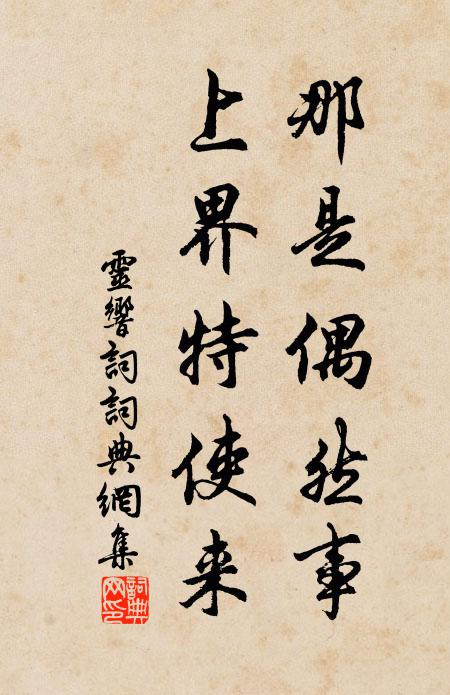 那是偶然事
上界特使来
靈響詞詞典網集
詞典網印